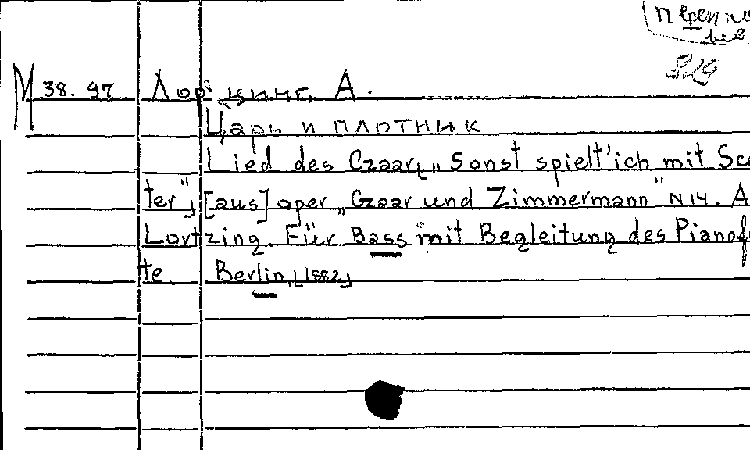 М 38. 97 Лорцинг, А.
Царь и плотник
Lied des Czaar, „Sonst spielt'ich mit Sc
ter", [aus] oper „Czaar und Zimmermann" N 14. A
Lortzing. Für Bass mit Begleitung des Pianof
te Berlin, [1882]